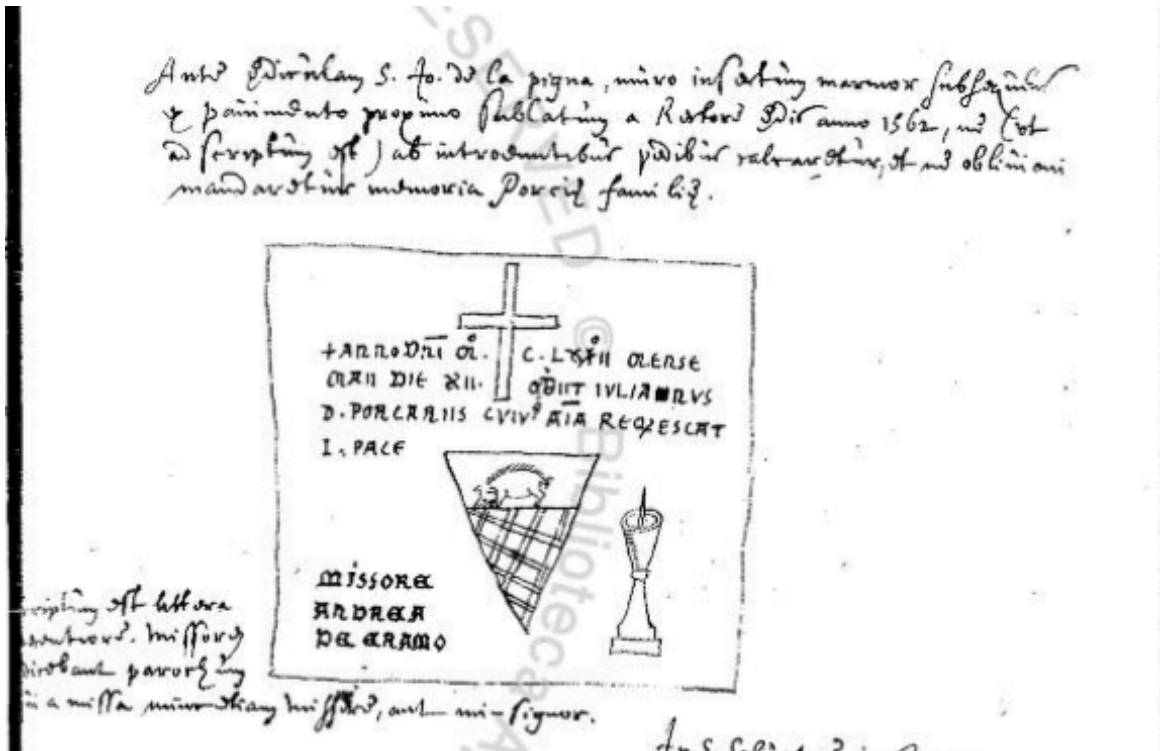 Ante Ediculam S. Jo. de la pigna, muro insertum marmor subsequens
e pavimento proximo sublatum a Rectore Edis anno 1562, ne (ut
adscriptum est) ab introeuntibus pedibus calcaretur, et ne oblivioni
mandaretur memoria Porcię familię.
+ ANNO DNI M. C. L MENSE
MAII DIE XII. OBIIT IULIANUS
D. PORCARIIS CUIUS AIA REQESCAT
I. PACE
MISSORE
ANDREA
DE ERAMO
est littera
Missore
dicebant parochum
a missa nunc etiam missere, aut mi-signor.
RESERVED. © Biblioteca